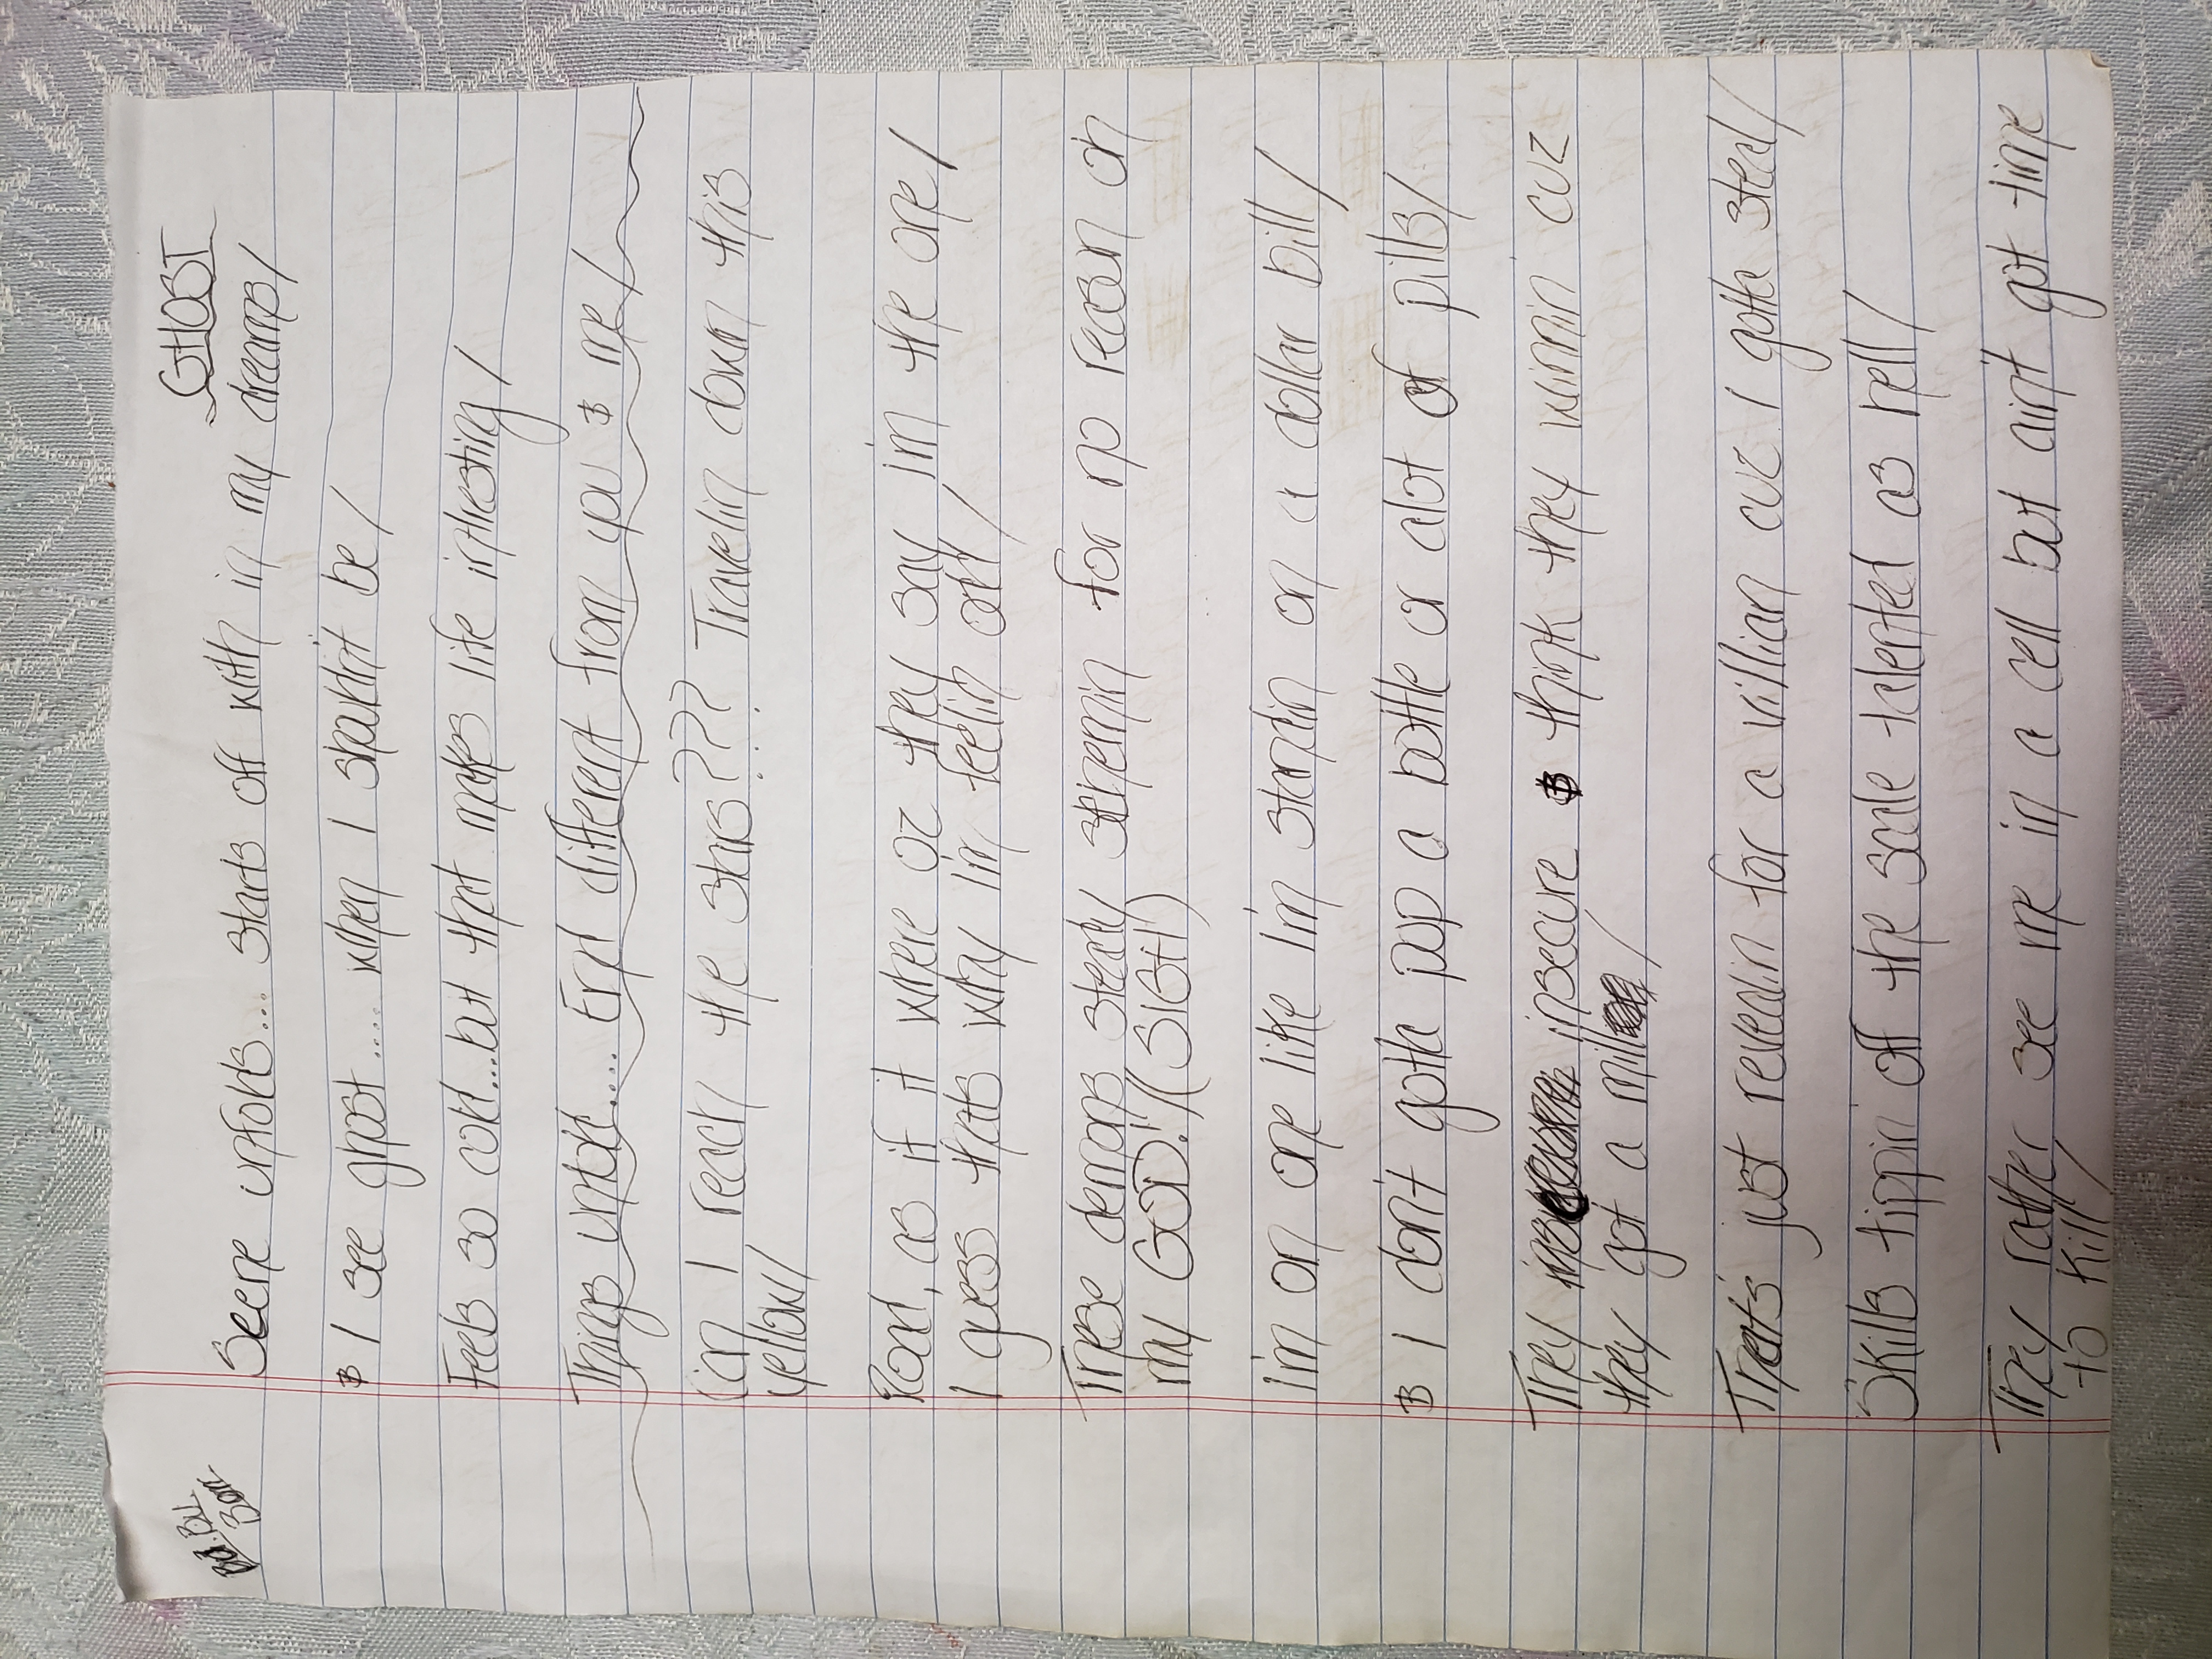 GHOST
Scene unfolds... starts off with in my dreams/
& I see ghost.... when I spouhit be/
Feels so cold...but that makes life intresting/
Things unfold..... End different from you & me/
Can I reach the stars??? Travelin down this
yellow/
Road, as if it where oz they say im the one/
I guess thats why I'm feelin odd/
These demons steady screamin for no reason oh
my GOD!/(SIGH)
I'm on one like I'm standin on a dollar bill/
& I don't gotta pop a bottle or alot of pills/
They insecure & think they winnin cuz
they got a mill/
That's just revealin for a villian cuz I gotta steal/
Skills tippin off the scale talented as hell/
They rather see me in a cell but ain't got time
to kill/